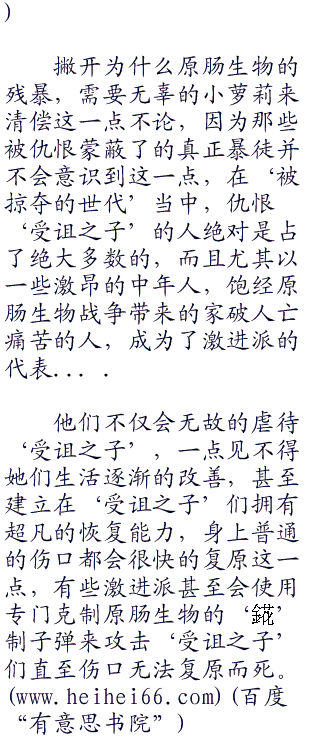 )
撇开为什么原肠生物的
残暴，需要无辜的小萝莉来
清偿这一点不论，因为那些
被仇恨蒙蔽了的真正暴徒并
不会意识到这一点，在‘被
掠夺的世代’当中，仇恨
‘受诅之子’的人绝对是占
了绝大多数的，而且尤其以
一些激昂的中年人，饱经原
肠生物战争带来的家破人亡
痛苦的人，成为了激进派的
代表....
他们不仅会无故的虐待
‘受诅之子’，一点见不得
她们生活逐渐的改善，甚至
建立在‘受诅之子’们拥有
超凡的恢复能力，身上普通
的伤口都会很快的复原这一
点，有些激进派甚至会使用
专门克制原肠生物的‘鋴’
制子弹来攻击‘受诅之子’
们直至伤口无法复原而死。
(www.heihei66.com)(百度
“有意思书院”)